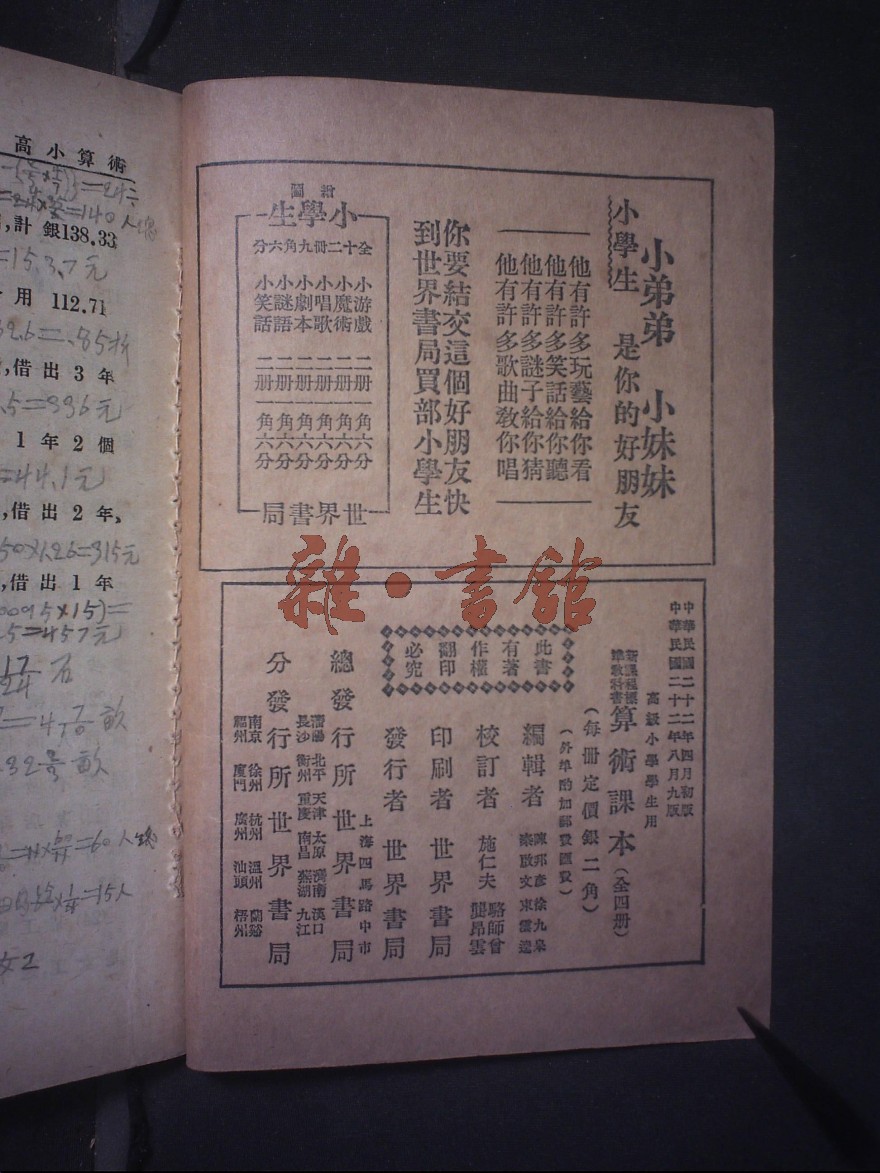 小弟弟 小妹妹
小學生 是你的好朋友
他有許多玩藝給你看
他有許多笑話給你聽
他有許多謎子給你猜
他有許多歌曲敎你唱
你要結交這個好朋友快
到世界書局買部小學生
繪圖
小學生
全十二冊九角六分
小游戲 二册 一角六分
小魔術 二册 一角六分
小唱歌 二册 一角六分
小劇本 二册 一角六分
小謎語 二册 一角六分
小笑話 二册 一角六分
世界書局
雜·書館
中華民國二十二年四月初版
中華民國二十二年八月九版
高級小學學生用
新課程標準敎科書
算術課本(全四册)
(每冊定價銀二角)
(外埠酌加郵費匯費)
此書有著作權翻印必究
編輯者
校訂者 施仁夫 駱師曾 龔昂雲
印刷者 世界書局
發行者 世界書局
上海四馬路中市
總發行所 世界書局
瀋陽 北平 天津 太原 濟南 漢口
長沙 衡州 重慶 南昌 蕪湖 九江
分發行所 世界書局
南京 徐州 杭州 溫州 蘭谿
福州 廈門 廣州 汕頭 梧州
高小算術
計銀138.33
=15.3.7元
用 112.71
,借出3年
1年2個
=44.1元
,借出2年、
50×1.26=315元
,借出1年